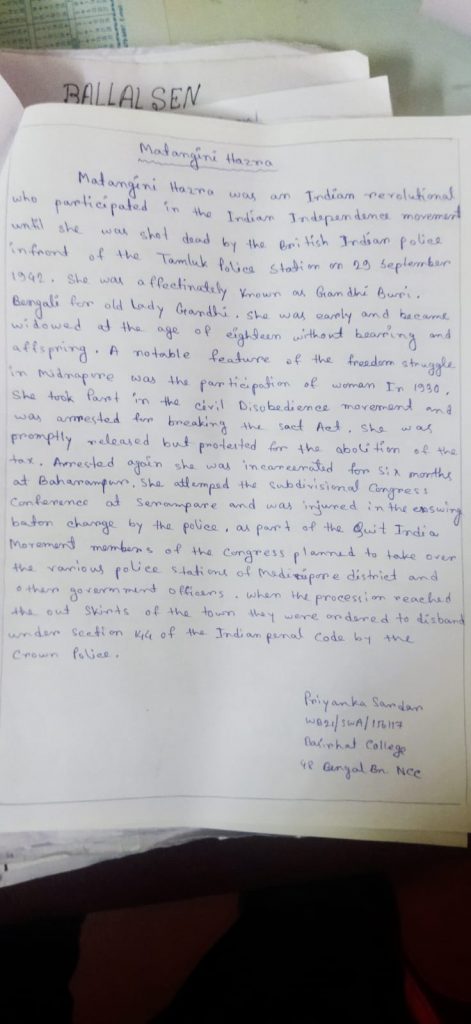 BALLAL SEN
Matangini Hazra
Matangini Hazra was an Indian revolutional
who participated in the Indian Independence movement
until she was shot dead by the British Indian police
infront of the Tamluk Police Station on 29 September
1942. She was affectinately known as Gandhi Buri.
Bengali for old lady Gandhi. She was early and became
widowed at the age of eighteen without bearing and
affspring. A notable feature of the freedom struggle
in Midnapore was the participation of woman In 1930.
She took Part in the civil Disobedience movement and
was arrested for breaking the sact Act. She was
promptly released but protested for the abolition of the
tax. Arrested again she was incarcerated for six months
at Baharampur. She attemped the subdivisional Congress
Conference at Serampare and was injured in the
baton change by the police. as part of the Quit India
Movement members of the Congress planned to take over
the various police stations of district and
other government officers. when the procession reached
the out skirts of the town they were ordered to disband
under section 144 of the Indian penal Code by the
Crown Police.
Priyanka Sardar
College
48 Bengal Bn. NCC